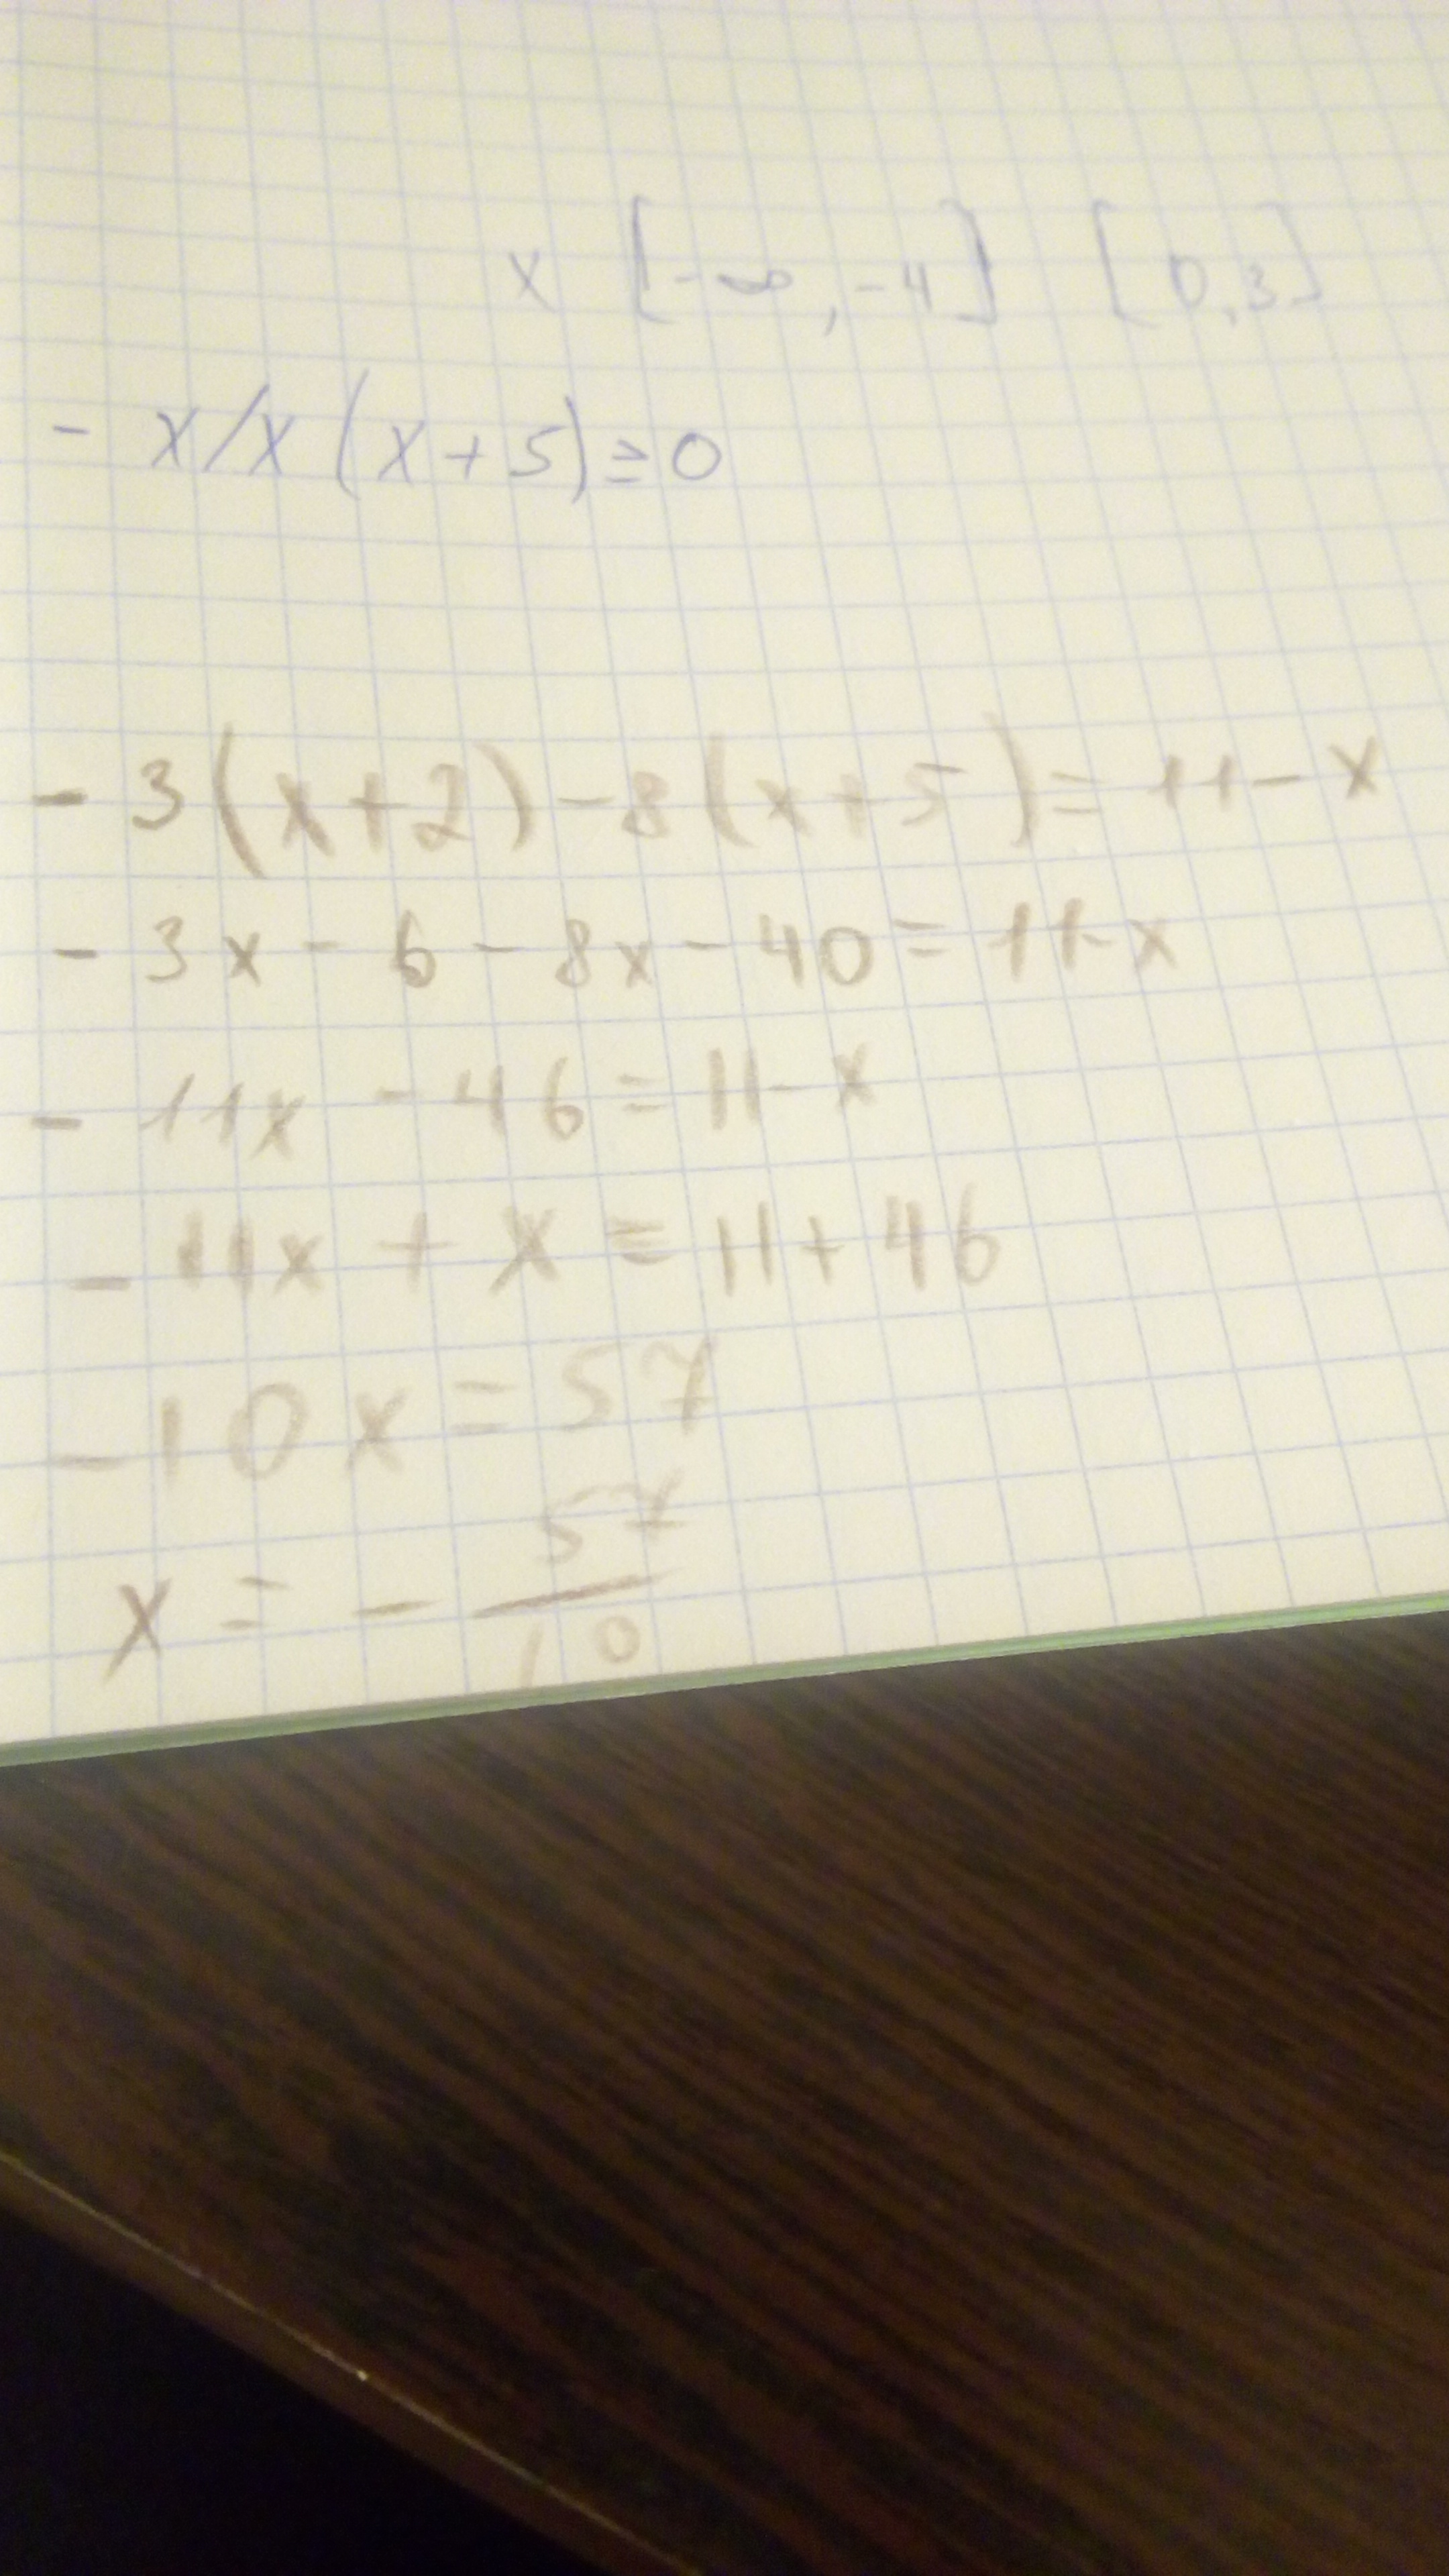 x [-∞, -4] [0,3]
- x/x (x+5) ≥ 0
- 3(x+2) - 8(x+5) = 11 - x
- 3x - 6 - 8x - 40 = 11 - x
- 11x - 46 = 11 - x
- 11x + x = 11 + 46
- 10x = 57
x = - 57/10